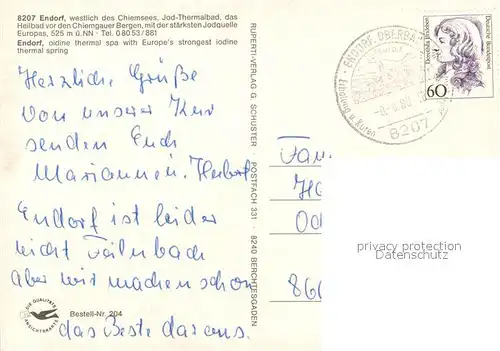 8207 Endorf, westlich des Chiemsees, Jod-Thermalbad, das
Heilbad vor den Chiemgauer Bergen, mit der stärksten Jodquelle
Europas, 525 m ü. NN · Tel. 0 80 53 / 881
Endorf, oidine thermal spa with Europe's strongest iodine
thermal spring
Herzliche Grüße
von unserer Kur
senden Euch
Mariannen. Herbert
Endorf ist leider
nicht Feilnbach
aber wir machen schon
das Beste daraus.
DIE QUALITÄTS
ANSICHTSKARTE
Bestell-Nr. 204
RUPERTI-VERLAG G. SCHUSTER POSTFACH 331 · 8240 BERCHTESGADEN
ENDORF, OBERBAY
Erholung u. Kuren
8207
Dorothea Erxleben
Deutsche Bundespost
60
Fam.
Ha
Od
866
privacy protection
Oldthing.de